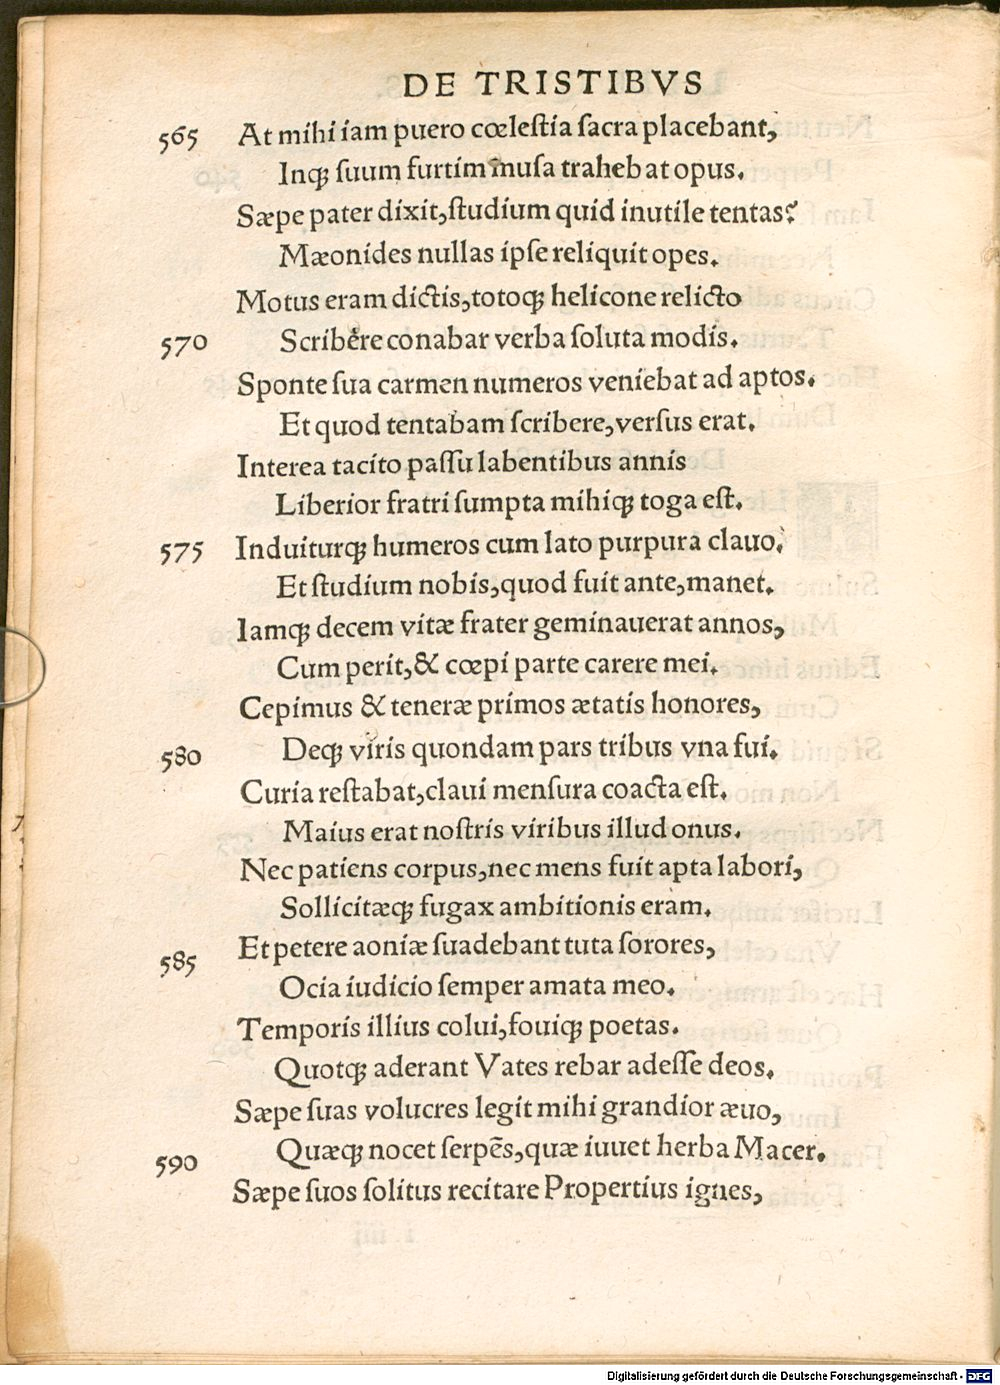 DE TRISTIBVS
565 At mihi iam puero cœlestia sacra placebant,
Inqꝫ suum furtim musa trahebat opus.
Sæpe pater dixit, studium quid inutile tentas?
Mæonides nullas ipse reliquit opes.
Motus eram dictis, totoqꝫ helicone relicto
570 Scribere conabar verba soluta modis.
Sponte sua carmen numeros veniebat ad aptos.
Et quod tentabam scribere, versus erat.
Interea tacito passu labentibus annis
Liberior fratri sumpta mihiqꝫ toga est.
575 Induiturqꝫ humeros cum lato purpura clauo.
Et studium nobis, quod fuit ante, manet.
Iamqꝫ decem vitæ frater geminauerat annos,
Cum perit, & cœpi parte carere mei.
Cepimus & teneræ primos ætatis honores,
580 Deqꝫ viris quondam pars tribus vna fui.
Curia restabat, claui mensura coacta est.
Maius erat nostris viribus illud onus.
Nec patiens corpus, nec mens fuit apta labori,
Sollicitæqꝫ fugax ambitionis eram.
585 Et petere aoniæ suadebant tuta sorores,
Ocia iudicio semper amata meo.
Temporis illius colui, fouiqꝫ poetas.
Quotqꝫ aderant Vates rebar adesse deos.
Sæpe suas volucres legit mihi grandior æuo,
590 Quæqꝫ nocet serpẽs, quæ iuuet herba Macer.
Sæpe suos solitus recitare Propertius ignes,
Digitalisierung gefördert durch die Deutsche Forschungsgemeinschaft - DFG